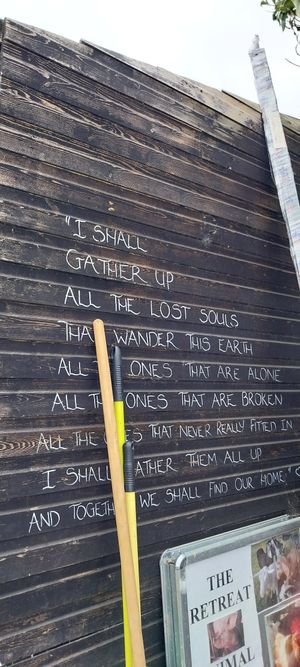 "I SHALL
GATHER UP
ALL THE LOST SOULS
THA WANDER THIS EARTH
ALL ONES THAT ARE ALONE
ALL TH ONES THAT ARE BROKEN
ALL THE O ES THAT NEVER REALLY FITTED IN
I SHALL ATHER THEM ALL UP
AND TOGETH WE SHALL FIND OUR HOME"
THE
RETREAT